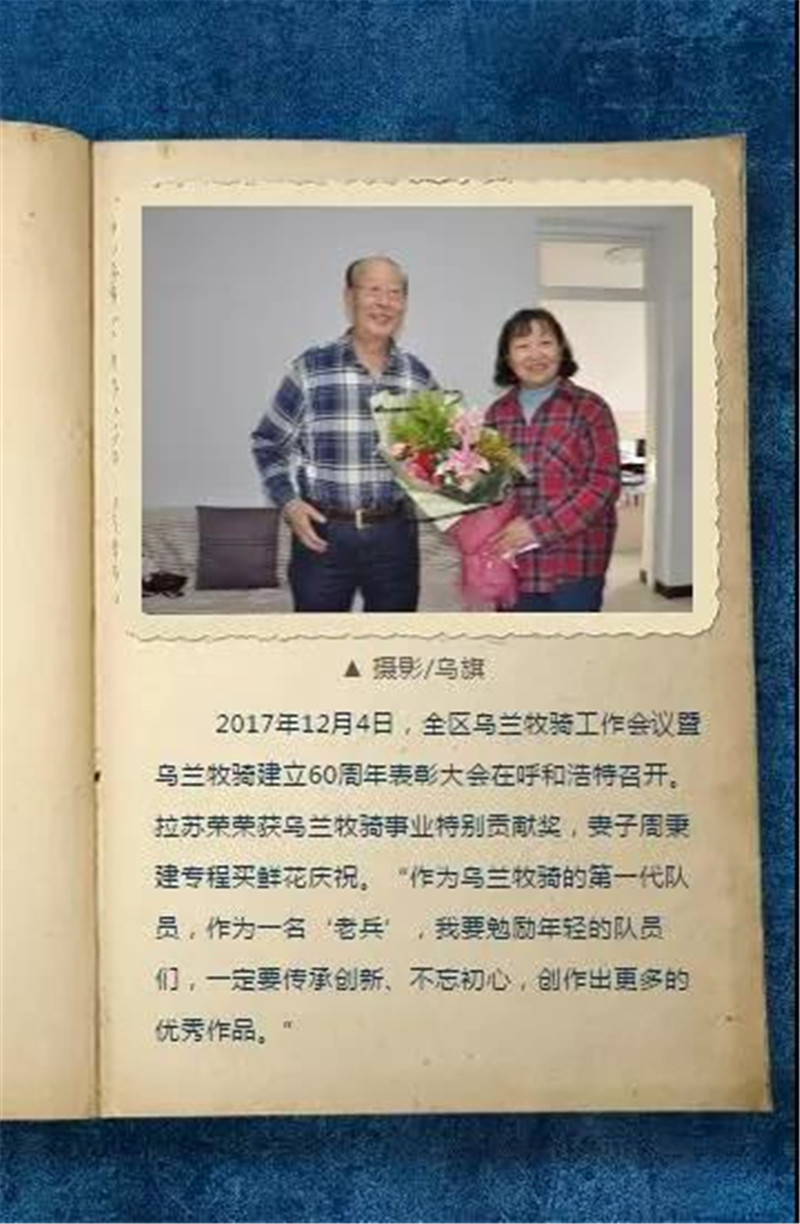 ▲ 摄影/乌旗
2017年12月4日，全区乌兰牧骑工作会议暨
乌兰牧骑建立60周年表彰大会在呼和浩特召开。
拉苏荣荣获乌兰牧骑事业特别贡献奖，妻子周秉
建专程买鲜花庆祝。“作为乌兰牧骑的第一代队
员，作为一名‘老兵’，我要勉励年轻的队员
们，一定要传承创新、不忘初心，创作出更多的
优秀作品。”